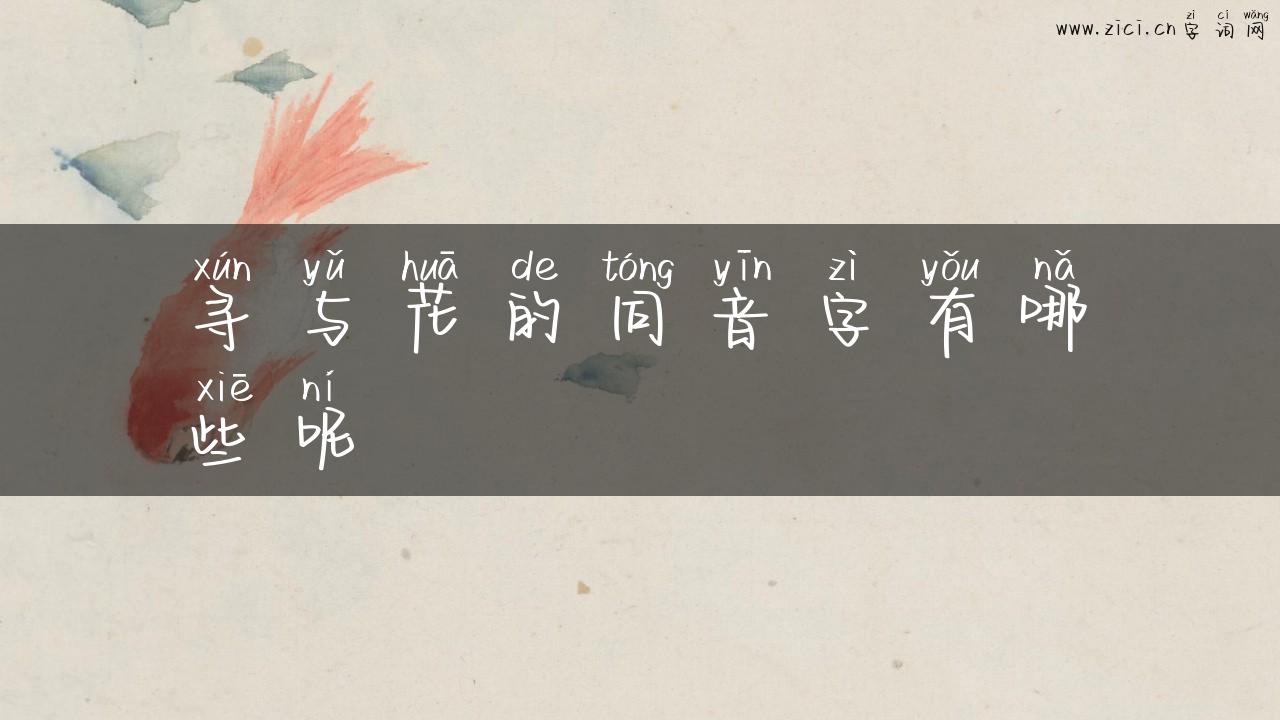 www.zici.cn
zì cí wǎng
字词网
xún yǔ huā de tóng yīn zì yǒu nǎ
寻与花的同音字有哪
xiē ní
些呢